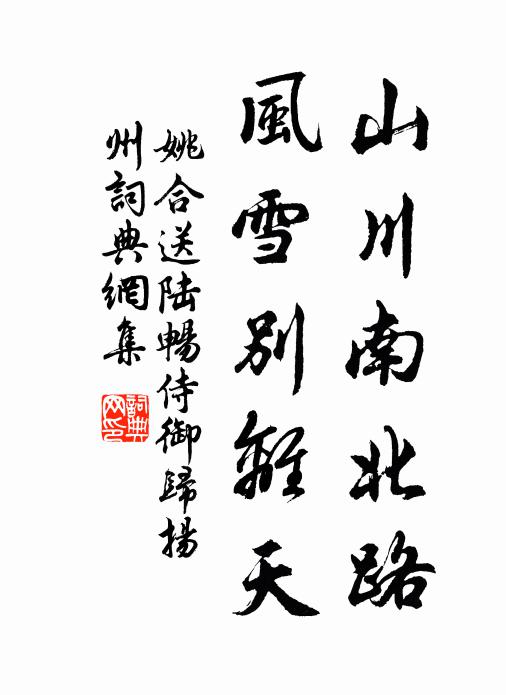 山川南北路
風雪別離天
姚合送陸暢侍御歸揚
州詞典網集
詞典
网印